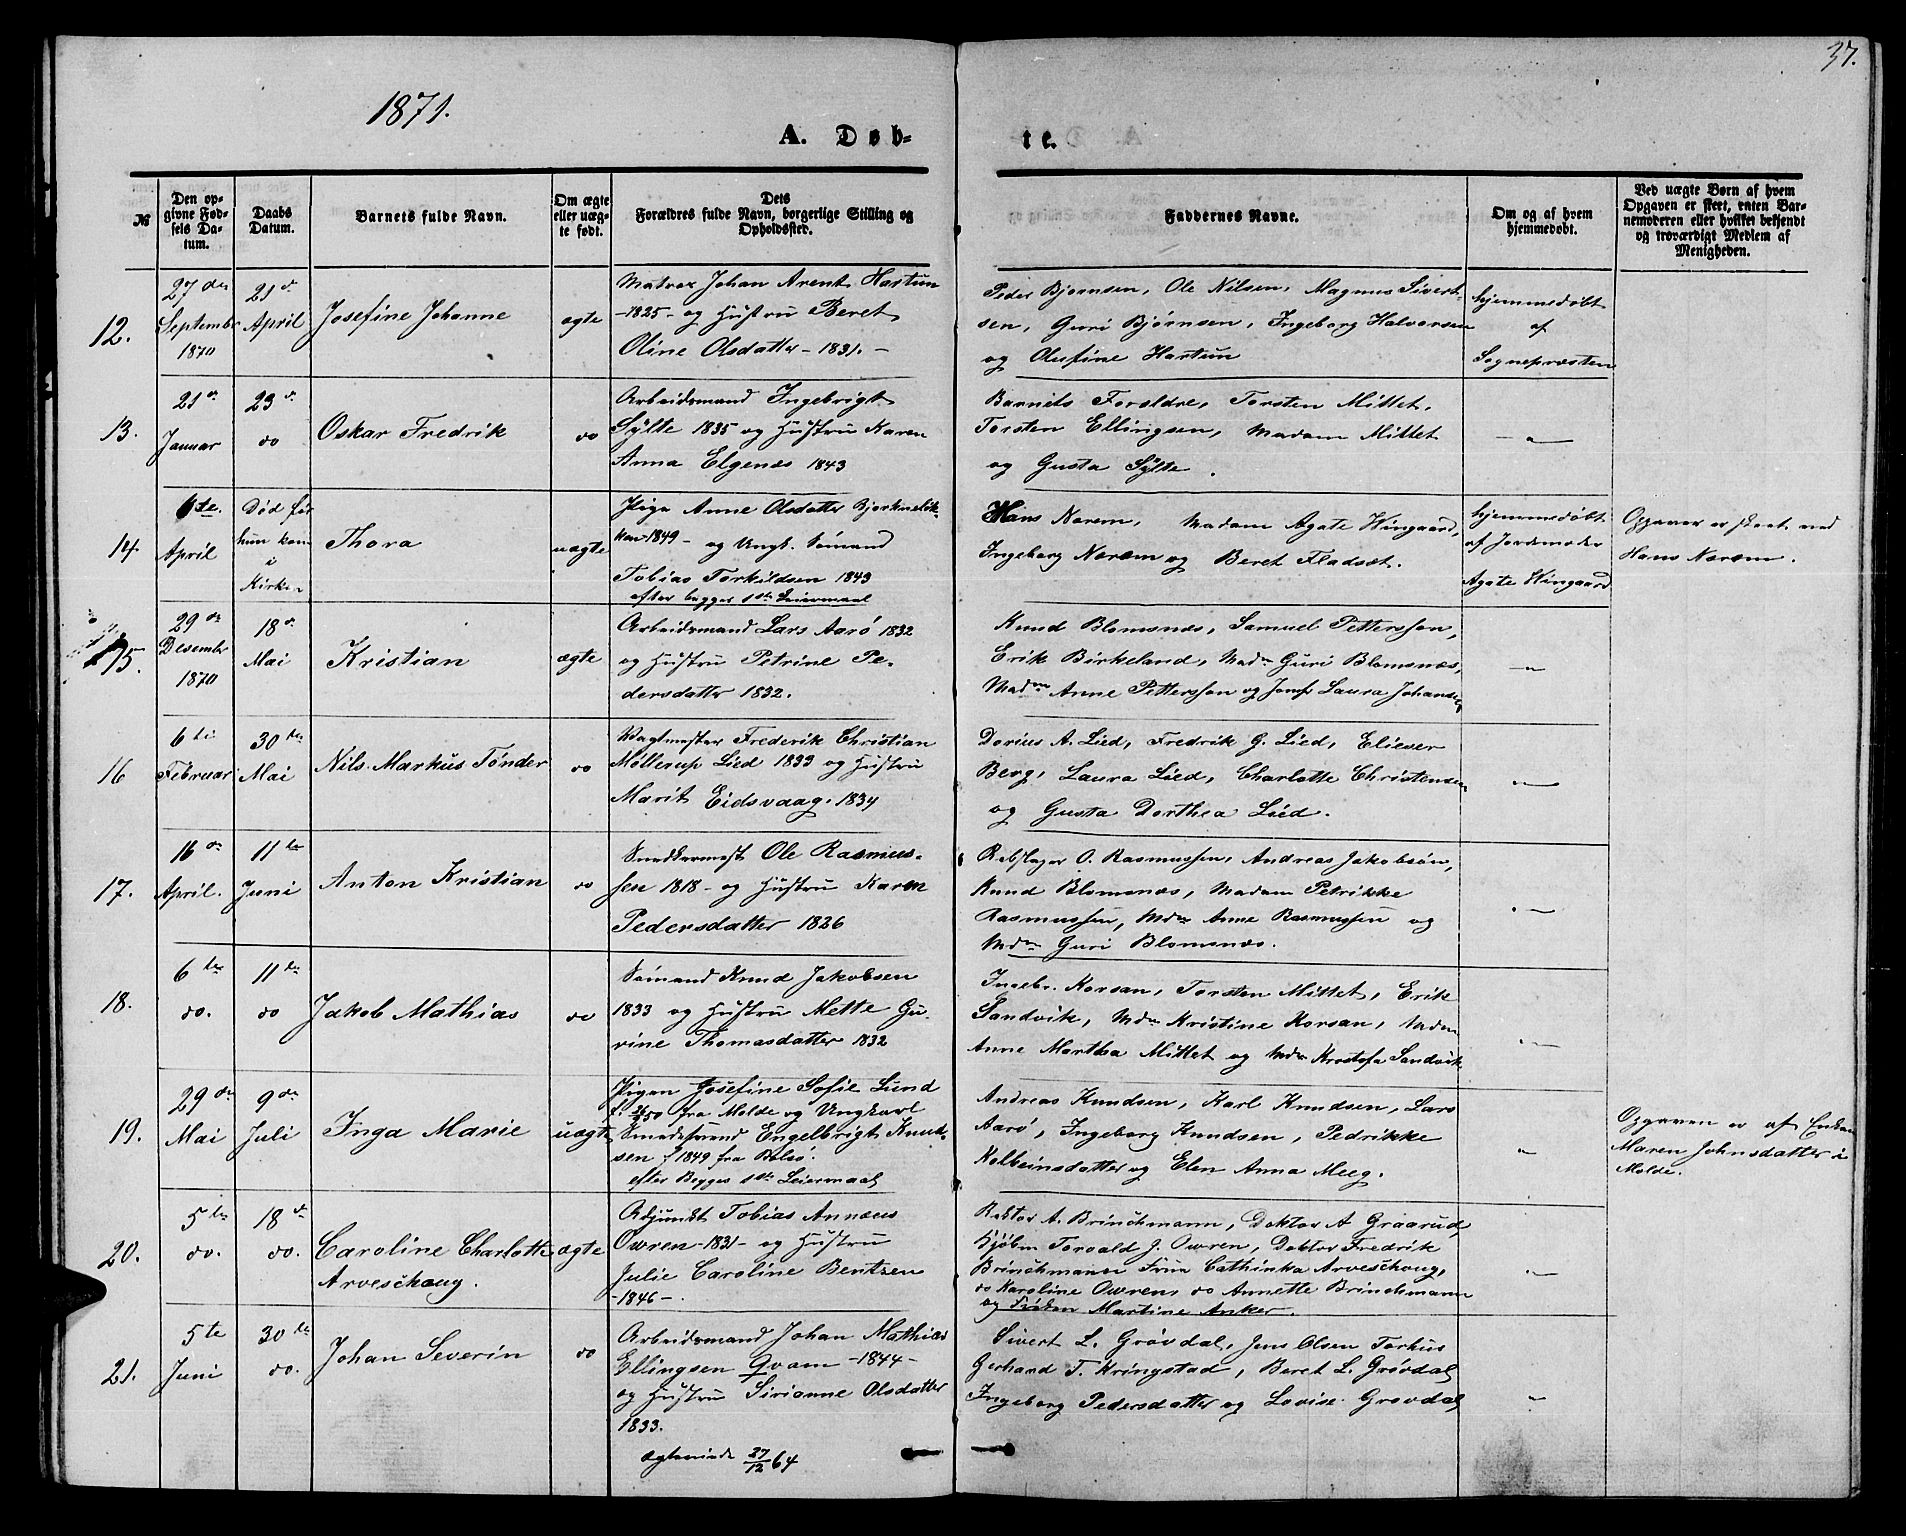 37.
1871.
A. Døb-
te.
№
Den op-
givne Fød-
sels Da-
tum.
Daabs
Datum.
Barnets fulde Navn.
Om ægte
eller uæg-
te født.
Dets
Forældres fulde Navn, borgerlige Stilling og
Opholdssted.
Faddernes Navne.
Om og af hvem
hjemmedøbt.
Ved uægte Børn af hvem
Opgaven er skeet, enten Bar-
nemoderen eller hvilket bekjendt
og troværdigt Medlem af
Menigheden.
12.
27de
September
1870
21de
April
Josefine Johanne
ægte
Matros Johan Arent Hastun
-1825- og Hustru Beret
Oline Olsdatter -1831.-
Peder Bjørnsen, Ole Nilsen, Magnus Sivert-
sen, Guri Bjørnsen, Ingeborg Halvorsen
og Olufine Hastun
hjemmedøbt
af
Sognepræsten
13.
21de
Januar
23de
do
Oskar Fredrik
do
Arbeidsmand Ingebrigt
Sylte 1835 og Hustru Karen
Anna Elgenæs 1843
Barnets Forældre, Torsten Mittet,
Torsten Ellingsen, Madam Mittet
og Gusta Sylte.
14
6te
April
Død før
hun kom
i
Kirken
Thora
uægte
Pige Anne Olsdatter
-1849- og Ungk. Sømand
Tobias Torkildsen 1843
efter begges 1ste Leiermaal
Hans Nærem, Madam Agate Hingaard,
Ingeborg Nærem og Beret Fladsæt.
hjemmedøbt
af Jordemoder
Agate Hingaard
Opgaven er skeet ved
Hans Nærem.
15.
29de
Desember
1870
18de
Mai
Kristian
ægte
Arbeidsmand Lars Aarø 1832
og Hustru Petrine Pe-
dersdatter 1832.
Knud Blomsnæs, Samuel Pettersson,
Erik Birkeland, Madm Guri Blomsnæs,
Madm Anne Pettersson og Jomf. Laura Johansen
16
6te
Februar
30te
Mai
Nils Markus Tønder
do
Vagtmester Frederik Christian
Møllerup Lied 1833 og Hustru
Marit Eidsvaag. 1834
Dorius A. Lied, Fredrik G. Lied, Elieser
Berg, Laura Lied, Charlotte Christensen
og Gusta Dorthea Lied.
17.
16de
April.
11te
Juni
Anton Kristian
do
Snedkermest. Ole Rasmus-
sen 1818- og Hustru Karen
Pedersdatter 1826
Rebslager O. Rasmussen, Andreas Jakobsen,
Knud Blomsnæs, Madam Petrikke
Rasmussen, Mdm Anne Rasmussen og
Mdm Guri Blomsnæs.
18.
6te
do.
11te
do
Jakob Mathias
do
Sømand Knud Jakobsen
1833 og Hustru Mette Gu-
rine Thomasdatter 1832
Ingebr. Korsan, Torsten Mittet, Erik
Sandvik, Mdm Kristine Korsan, Mdm
Anne Martha Mittet og Mdm Kristofa Sandvik
19.
29de
Mai
9de
Juli
Inga Marie
uægte
Pigen Josefine Sofie Lund
fra Molde og Ungkarl
Smedesvend Engelbrigt Knud-
sen f. 1849 fra Bolsø.
efter Begges 1ste Leiermaal
Andreas Knudsen, Karl Knudsen, Lars
Aarø, Ingeborg Knudsen, Pedrikke
Kolbeinsdatter og Elen Anna Meeg.
Opgaven er af Enken
Maren Johnsdatter i
Molde.
20.
5te
do.
18de
do.
Caroline Charlotte
Arveschoug.
ægte
Adjunkt Tobias Annæus
Owren -1831- og Hustru
Julie Caroline Bentzen
-1846-.
Rektor A. Brinchmann, Doktor A Graarud,
Kjøbm Torvald J. Owren, Doktor Fredrik
Brinchmann Frue Cathinka Arveschoug,
do Karoline Owren, do Annette Brinchmann
og Frøken Martine Anker.
21.
5te
Juni
30te
do.
Johan Severin
do
Arbeidsmand Johan Mathias
Ellingsen Qvam -1844-
og Hustru Sirianne Olsdatter
1833.
ægteviede 27/12 64
Sivert L. Grøvdal, Jens Olsen Torhus
Gerhard T. Kringstad, Beret L. Grøvdal
Ingeborg Pedersdatter og Lovise Grøvdal